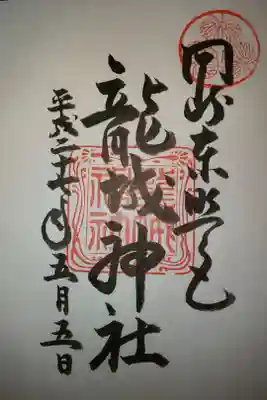 岡崎東照宮
龍城神社
平成二十七年五月五日